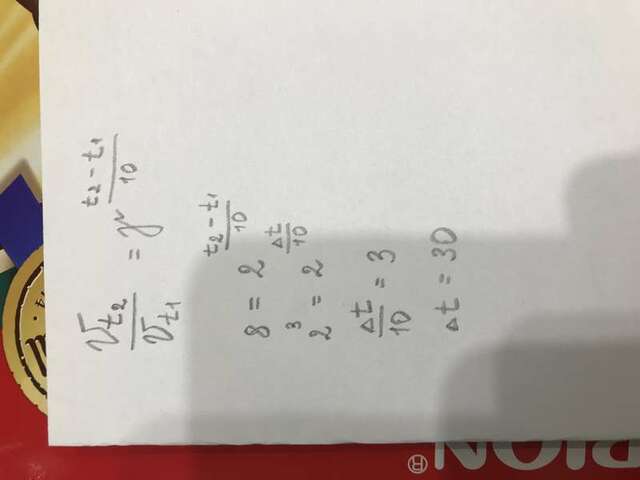 V_{t_2} / V_{t_1} = γ^{(t_2 - t_1)/10}
8 = 2^{(t_2 - t_1)/10}
2^3 = 2^{Δt/10}
Δt/10 = 3
Δt = 30
RION®